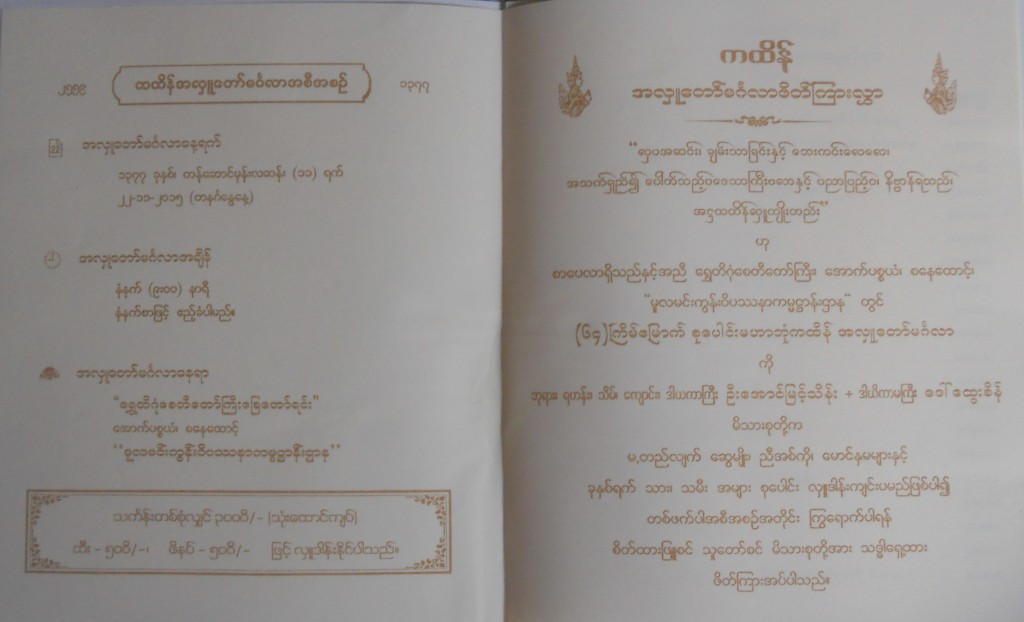 ၂၅၅၉
ကထိန်အလှူတော်မင်္ဂလာအစီအစဉ်
၁၃၇၇
အလှူတော်မင်္ဂလာနေ့ရက်
၁၃၇၇ ခုနှစ်၊ တန်ဆောင်မုန်းလဆန်း (၁၁) ရက်
၂၂-၁၁-၂၀၁၅ (တနင်္ဂနွေနေ့)
အလှူတော်မင်္ဂလာအချိန်
နံနက် (၉းဝဝ) နာရီ
နံနက်စာဖြင့် ဧည့်ခံပါမည်။
အလှူတော်မင်္ဂလာနေရာ
“ရွှေတိဂုံစေတီတော်ကြီးခြေတော်ရင်း”
အောက်ပစ္စယံ၊ စနေထောင့်
“မူလမင်းကွန်းဝိပဿနာကမ္မဋ္ဌာန်းဌာန”
သင်္ကန်းတစ်စုံလျှင် ၃၀၀၀ိ/- (သုံးထောင်ကျပ်)
ထီး - ၅၀၀ိ/-၊ ဖိနပ် - ၅၀၀ိ/- ဖြင့် လှူဒါန်းနိုင်ပါသည်။
ကထိန်
အလှူတော်မင်္ဂလာဖိတ်ကြားလွှာ
“ရူပအဆင်း၊ ချမ်းသာခြင်းနှင့် ဘေးကင်းစေသော၊
အသက်ရှည်၍ ပေါ်တိတ်သည့်ဝဒေသာကြီးဝဘောနှင့် ပညာပြည့်ဝ၊ နိဗ္ဗာန်ရတည်၊
အဋ္ဌကထိန်လှူကျိုးတည်း”
ဟု
စာပေလာရှိသည်နှင့်အညီ ရွှေတိဂုံစေတီတော်ကြီး၊ အောက်ပစ္စယံ၊ စနေထောင့်၊
“မူလမင်းကွန်းဝိပဿနာကမ္မဋ္ဌာန်းဌာန“ တွင်
(၆၄)ကြိမ်မြောက် စုပေါင်းမဟာဘုံကထိန် အလှူတော်မင်္ဂလာ
ကို
ဘုရား၊ ရဟန်း၊ သိမ်၊ ကျောင်း၊ ဒါယကာကြီး ဦးအောင်မြင့်သိန်း + ဒါယိကာမကြီး ဒေါ်ထွေးစိန်
မိသားစုတို့က
မ,တည်လျက် ဆွေမျိုး၊ ညီအစ်ကို၊ မောင်နှမများနှင့်
ခုနှစ်ရက် သား၊ သမီး အများ စုပေါင်း လှူဒါန်းကျင်းပမည်ဖြစ်ပါ၍
တစ်ဖက်ပါအစီအစဉ်အတိုင်း ကြွရောက်ပါရန်
စိတ်ထားဖြူစင် သူတော်စင် မိသားစုတို့အား သဒ္ဓါရှေ့ထား
ဖိတ်ကြားအပ်ပါသည်။